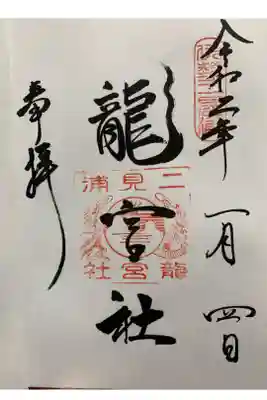 令和二年
一月
四日
龍宮社
二見浦
龍宮社
奉拝